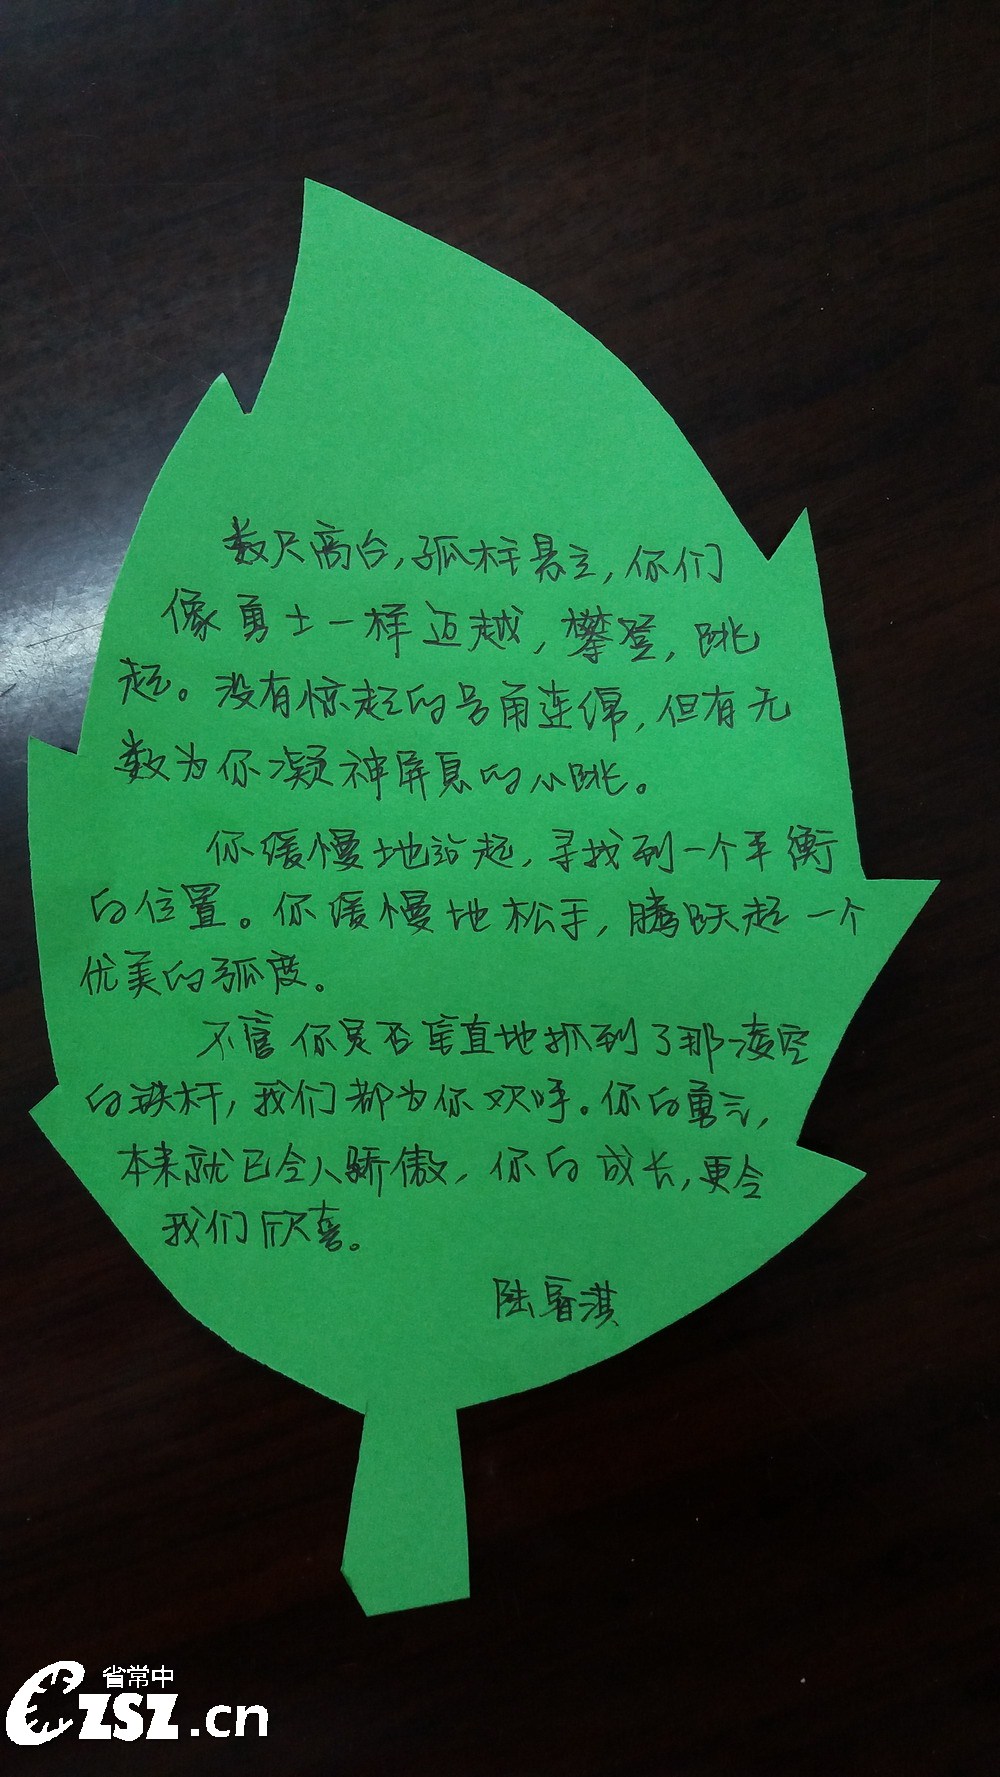 数尺高台,孤杆悬立,你们
像勇士一样迈越,攀登,跳
起。没有惊起的号角连绵,但有无
数为你凝神屏息的心跳。
你缓慢地站起,寻找到一个平衡
的位置。你缓慢地松手,腾跃起一个
优美的弧度。
不管你是否垂直地抓到了那凌空
的铁杆,我们都为你欢呼。你的勇气,
本来就已令人骄傲,你的成长,更令
我们欣喜。
陆睿淇
省常中
CZSZ.cn